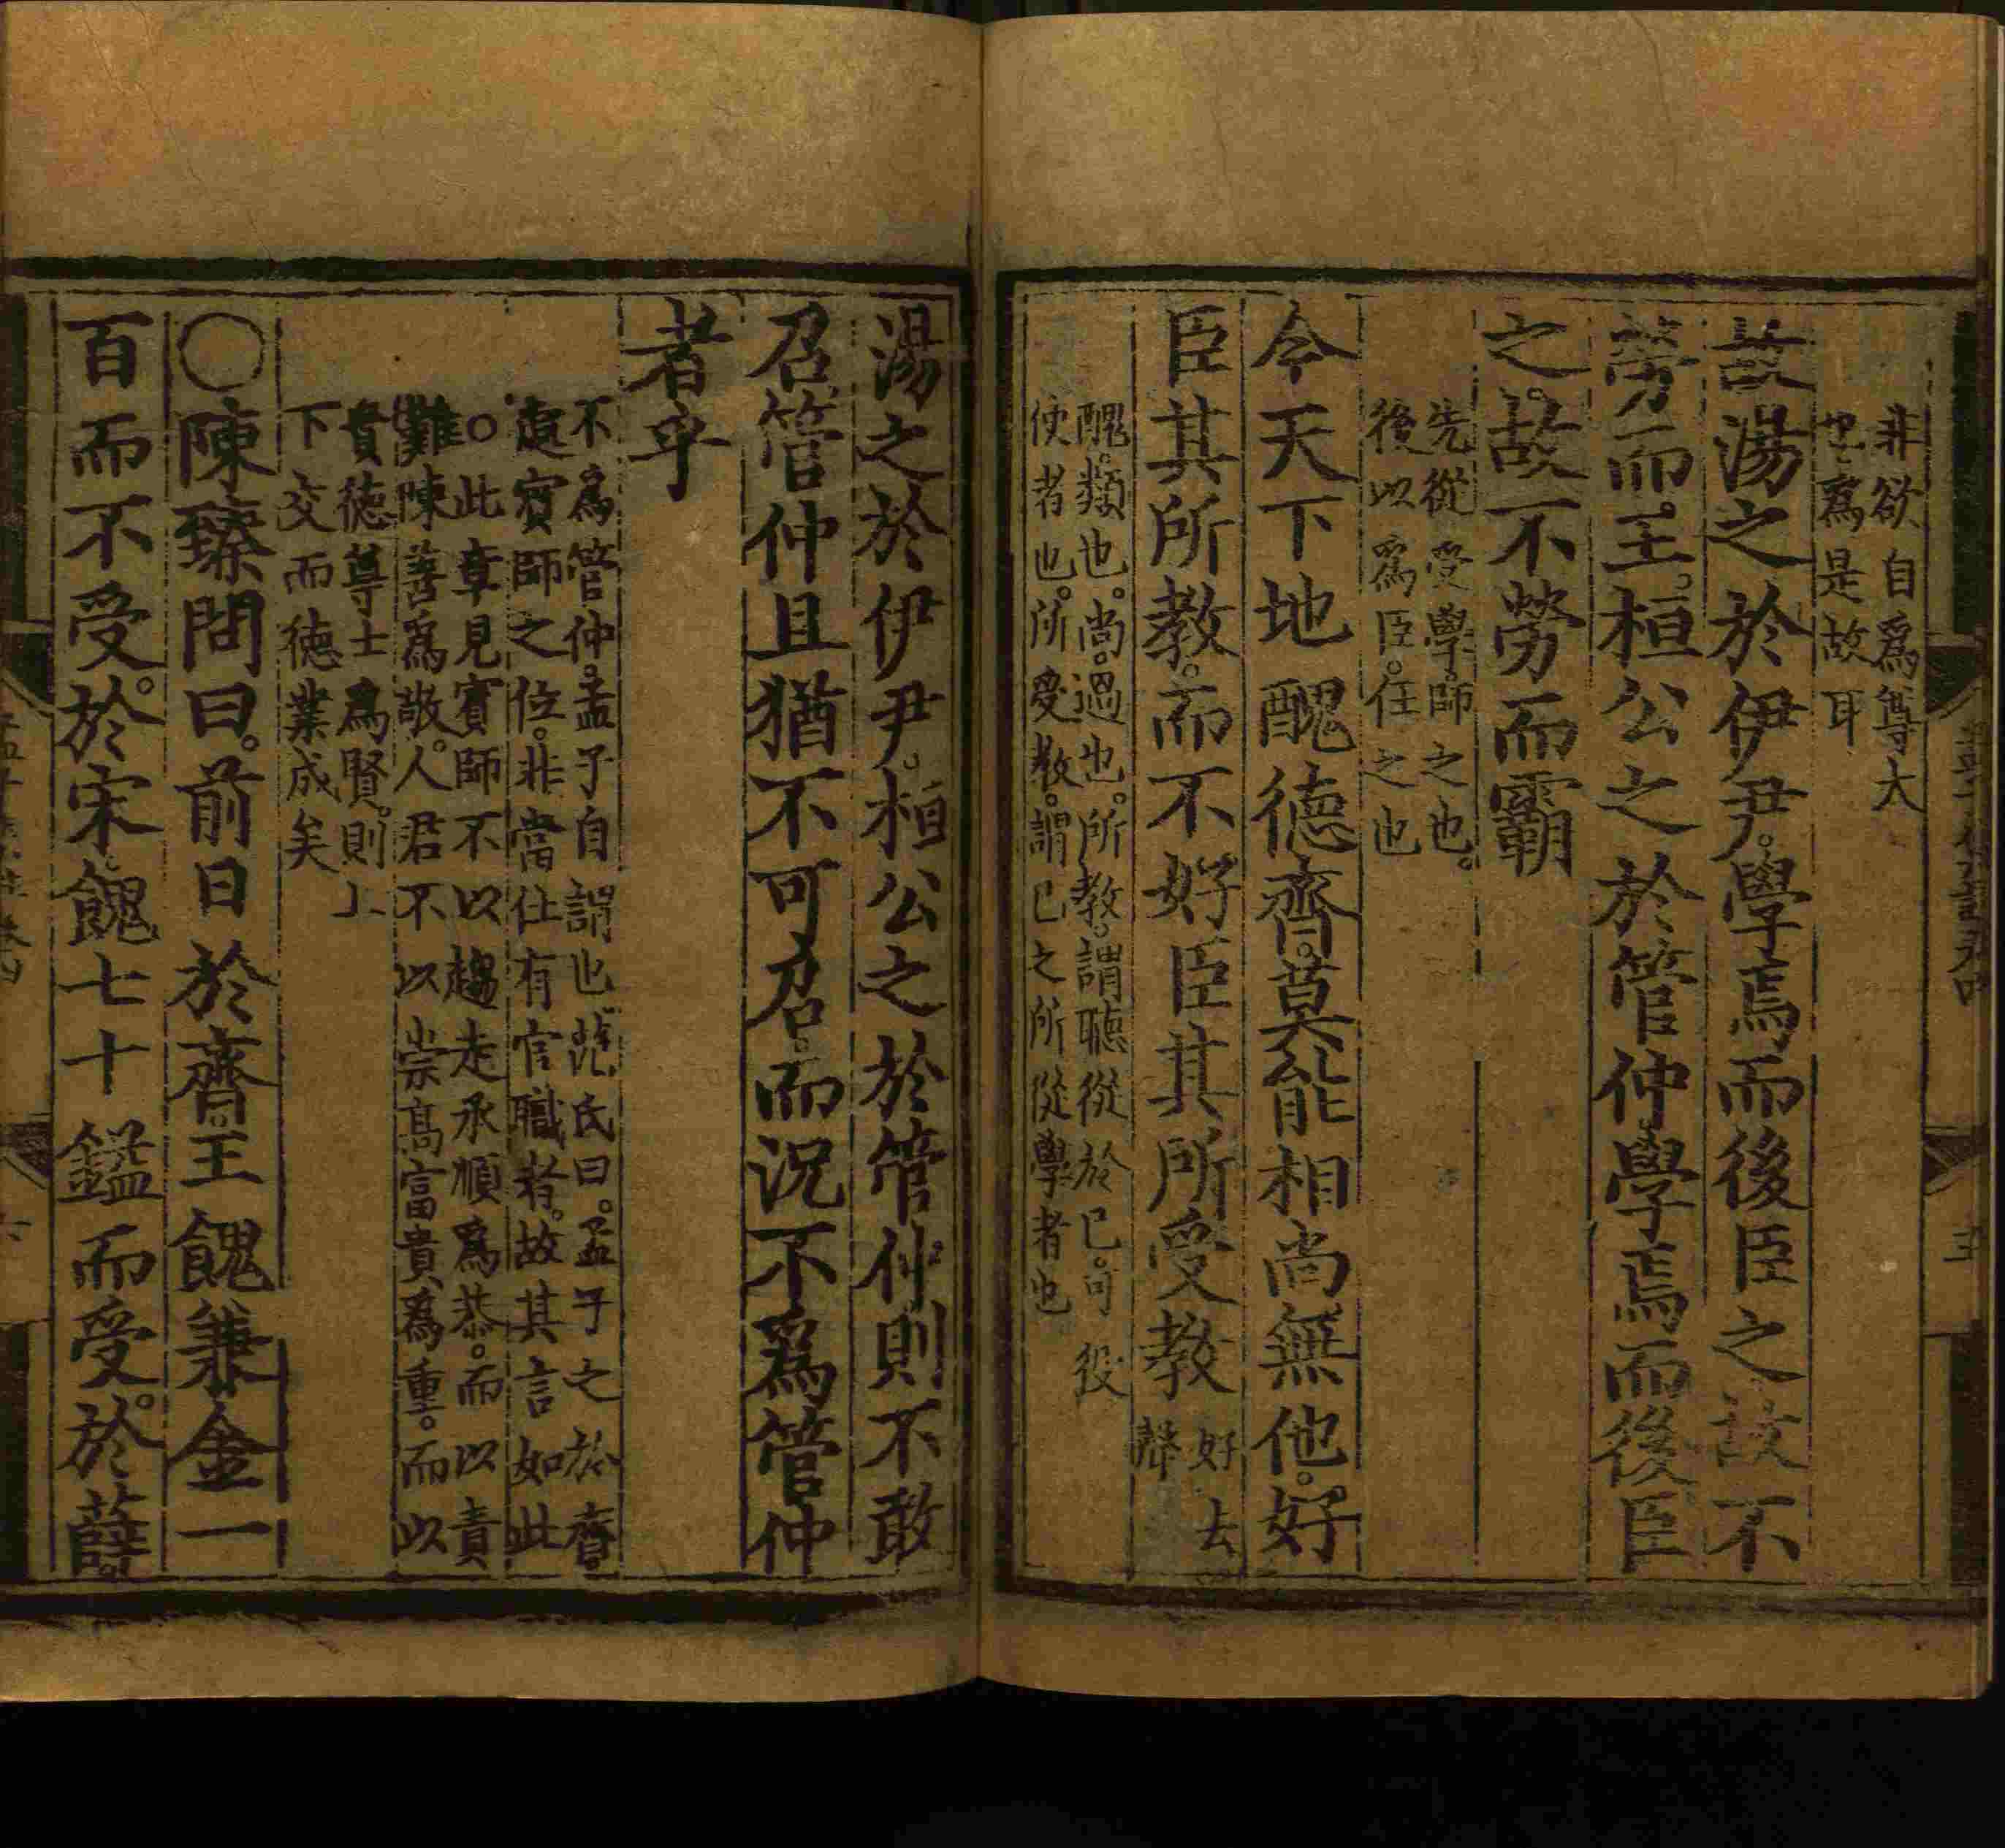 非欲自爲尊大
也爲是故耳
故湯之於伊尹。學焉而後臣之故不
勞而王。桓公之於管仲學焉而後臣
之。故不勞而霸
先從受學。師之也。
後以爲臣。任之也
今天下地醜德齊。莫能相尚無他。好
臣其所教。而不好臣其所受教
好去
聲
醜。類也。尚。過也。所教。謂聽從於己。可役
使者也。所受教。謂己之所從學者也
湯之於伊尹。桓公之於管仲。則不敢
召。管仲且猶不可召。而況不爲管仲
者乎
不爲管仲。孟子自謂也。范氏曰。孟子之於齊。
處賓師之位。非當仕有官職者。故其言如此
○此章見賓師不以趨走承順爲恭。而以責
難陳善爲敬。人君不以崇高富貴爲重。而以
貴德尊士爲賢。則上
下交而德業成矣
○陳臻問曰。前日於齊王餽兼金一
百而不受。於宋餽七十鎰而受。於薛